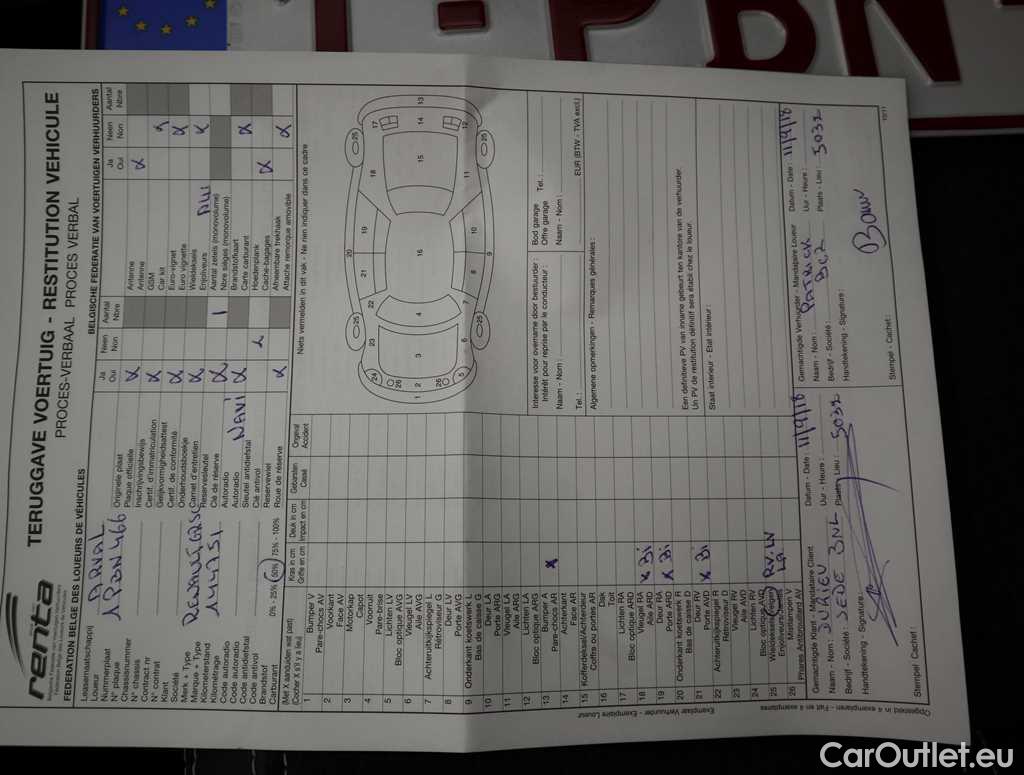 1-PBN
renta
Belgische Federatie van Voertuigverhuurders
TERUGGAVE VOERTUIG - RESTITUTION VEHICULE
PROCES-VERBAAL PROCES VERBAL
FEDERATION BELGE DES LOUEURS DE VÉHICULES
BELGISCHE FEDERATIE VAN VOERTUIGEN VERHUURDERS
Leasemaatschappij
Loueur ARVAL
Nummerplaat
N° plaque 1PBN466
Chassisnummer
N° chassis
Contract nr
N° contrat
Klant
Société
Merk + Type
Marque + Type RENAULT
Kilometerstand
Kilométrage
Code autoradio
Code autoradio
Code antidiefstal
Code antivol
Brandstof
Carburant 0% - 25% - 50% - 75% - 100%
Ja Neen Aantal
Oui Non Nbre
Originele plaat
Plaque officielle
Inschrijvingsbewijs
Certif. d'immatriculation
Gelijkvormigheidsattest
Certif. de conformité
Onderhoudsboekje
Carnet d'entretien
Reservesleutel
Clé de réserve
Autoradio
Autoradio NAVI
Sleutel antidiefstal
Clé antivol
Reservewiel
Roue de réserve
Ja Neen Aantal
Oui Non Nbre
Antenne
Antenne
GSM
Car kit
Euro-vignet
Euro vignette
Wieldeksels
Enjoliveurs ALU
Aantal zetels (monovolume)
Nbre sièges (monovolume)
Brandstofkaart
Carte carburant
Hoedenplank
Cache-bagages
Afneembare trekhaak
Attache remorque amovible
(Met X aanduiden wat past)
(Cocher X s'il y a lieu)
Kras in cm
Griffe en cm
Deuk in cm
Impact en cm
Gebarsten
Cassé
Original
Accident
1 Bumper V
Pare-chocs AV
2 Voorkant
Face AV
3 Motorkap
Capot
4 Voorruit
Pare-brise
5 Lichten LV
Bloc optique AVG
6 Vleugel LV
Aile AVG
7 Achteruitkijkspiegel L
Rétroviseur G
8 Deur LV
Porte AVG
9 Onderkant koetswerk L
Bas de caisse G
10 Deur LA
Porte ARG
11 Vleugel LA
Aile ARG
12 Lichten LA
Bloc optique ARG
13 Bumper A
Pare-chocs AR X
14 Achterkant
Face AR
15 Kofferdeksel/Achterdeur
Coffre ou portes AR
16 Dak
Toit
17 Lichten RA
Bloc optique ARD
18 Vleugel RA
Aile ARD X Bi
19 Deur RA
Porte ARD X Bi
20 Onderkant koetswerk R
Bas de caisse D
21 Deur RV
Porte AVD X Bi
22 Achteruitkijkspiegel R
Rétroviseur D
23 Vleugel RV
Aile AVD
24 Lichten RV
Bloc optique AVD
25 RV. LV
LA
26 Mistlampen V
Phares Antibrouillard AV
Niets vermelden in dit vak - Ne rien indiquer dans ce cadre
Interesse voor overname door bestuurder :
Intérêt pour reprise par le conducteur :
Naam - Nom :
Tel. :
Bod garage
Offre garage Tel. :
Naam - Nom :
EUR (BTW - TVA excl.)
Algemene opmerkingen - Remarques générales :
Een definitieve PV van inname gebeurt ten kantore van de verhuurder.
Un PV de restitution définitif sera établi chez le loueur.
Staat interieur - Etat intérieur :
Gemachtigde Klant - Mandataire Client
Datum - Date : 11/9/18
Naam - Nom :
Uur - Heure :
Bedrijf - Société :
Plaats - Lieu : 5032
Handtekening - Signature :
Stempel - Cachet :
Gemachtigde Verhuurder - Mandataire Loueur
Datum - Date : 11/9/18
Naam - Nom : PATRICK
Uur - Heure :
Bedrijf - Société : BC2
Plaats - Lieu : 5032
Handtekening - Signature :
Stempel - Cachet :
Exemplaar Verhuurder - Exemplaire Loueur
Opgesteld in 4 exemplaren - Fait en 4 exemplaires
10/11
CarOutlet.eu